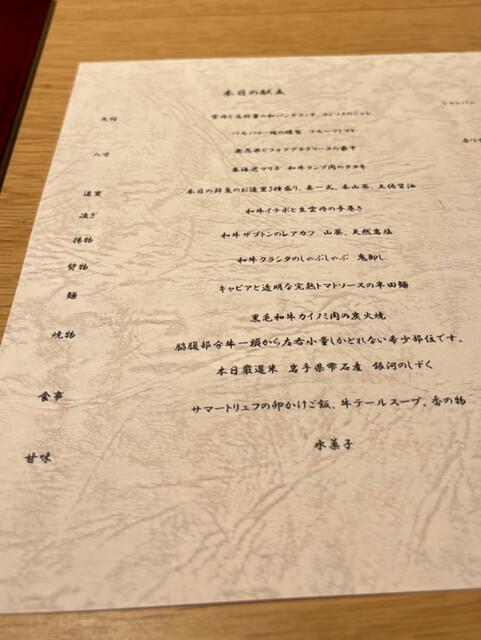 本日の献立
シャンパン
先付 雲丹と馬鈴薯の和パンナコッタ、コンソメのジュレ
バルバリー鴨の燻製 フルーツトマト
八寸 無花果とフォアグラテリーヌの最中
車海老マリネ 和牛ランプ肉のタタキ
造里 本日の鮮魚のお造里3種盛り、妻一式、本山葵、土佐醤油
凌ぎ 和牛イチボと生雲丹の手巻き
揚物 和牛ザブトンのレアカツ 山葵、天然岩塩
焚物 和牛クラシタのしゃぶしゃぶ 鬼卸し
麺 キャビアと透明な完熟トマトソースの半田麺
黒毛和牛カイノミ肉の炭火焼
焼物 脇腹部分牛一頭から左右小量しかとれない希少部位です。
本日厳選米 岩手県雫石産 銀河のしずく
食事 サマートリュフの卵かけご飯、牛テールスープ、香の物
甘味 水菓子